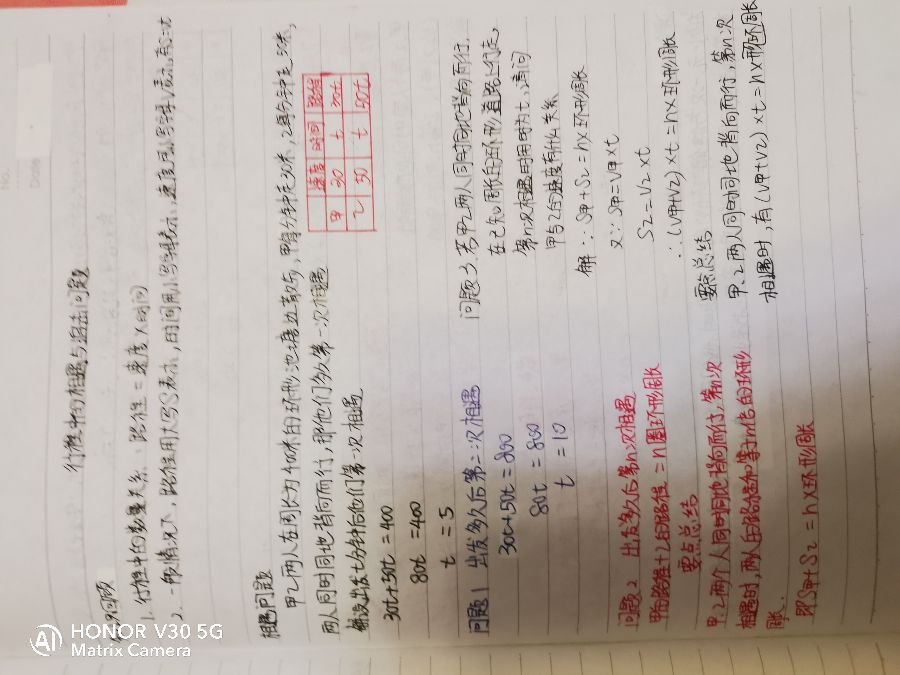 No.
Date
行程中的相遇与追击问题
回顾
1. 行程中的数量关系：路程 = 速度×时间
2. 一般情况下，路程用大写S表示，时间用小写t表示，速度用小写v表示
相遇问题
甲乙两人在周长为400米的环形池塘边散步，甲每分钟走30米，乙每分钟走50米，
两人同时同地背向而行，那他们多久第一次相遇
解：设出发t分钟后他们第一次相遇
30t+50t=400
80t=400
t=5
速度 时间 路程
甲 30 t 30t
乙 50 t 50t
问题1 出发多久后第二次相遇
30t+50t=800
80t=800
t=10
问题2 出发多久后第n次相遇
甲的路程+乙的路程=n圈环形周长
要点总结
甲、乙两个人同时同地背向而行，第n次
相遇时，两人的路程和等于n倍的环形
周长.
即S甲+S乙=n×环形周长
问题3. 若甲乙两人同时同地背向而行.
在已知周长的环形道路上行走,
第n次相遇时用时为t，请问
甲与乙的速度有什么关系
解∵S甲+S乙=n×环形周长
又∵S甲=V甲×t
S乙=V乙×t
∴(V甲+V乙)×t=n×环形周长
要点总结
甲、乙两人同时同地背向而行，第n次
相遇时，有(V甲+V乙)×t=n×环形周长
HONOR V30 5G
Matrix Camera